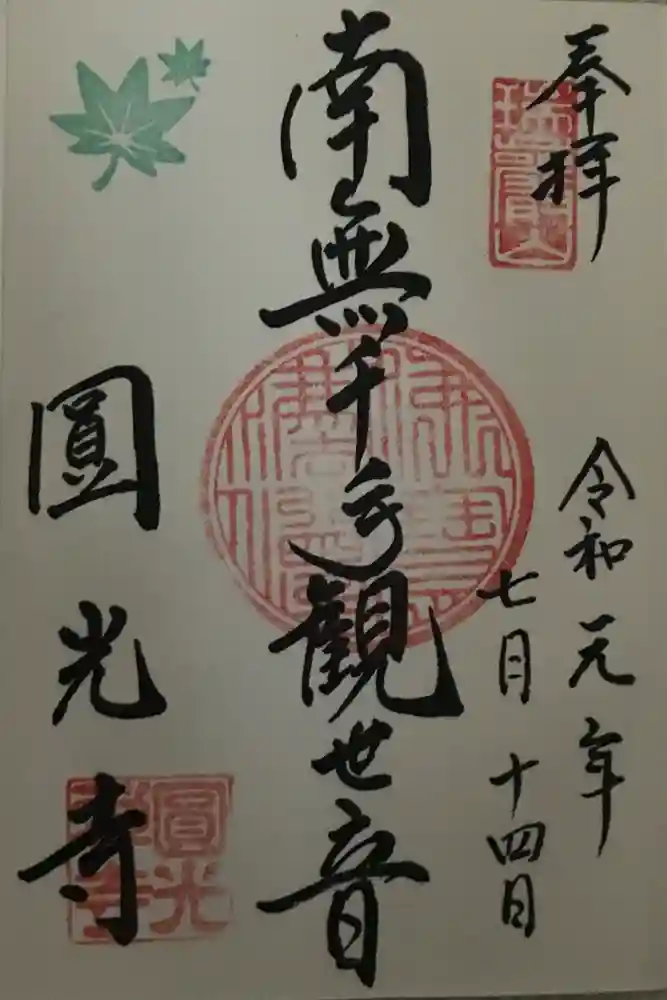 奉拝
令和元年
七月十四日
南無千手観世音
圓光寺
圓光
禅寺